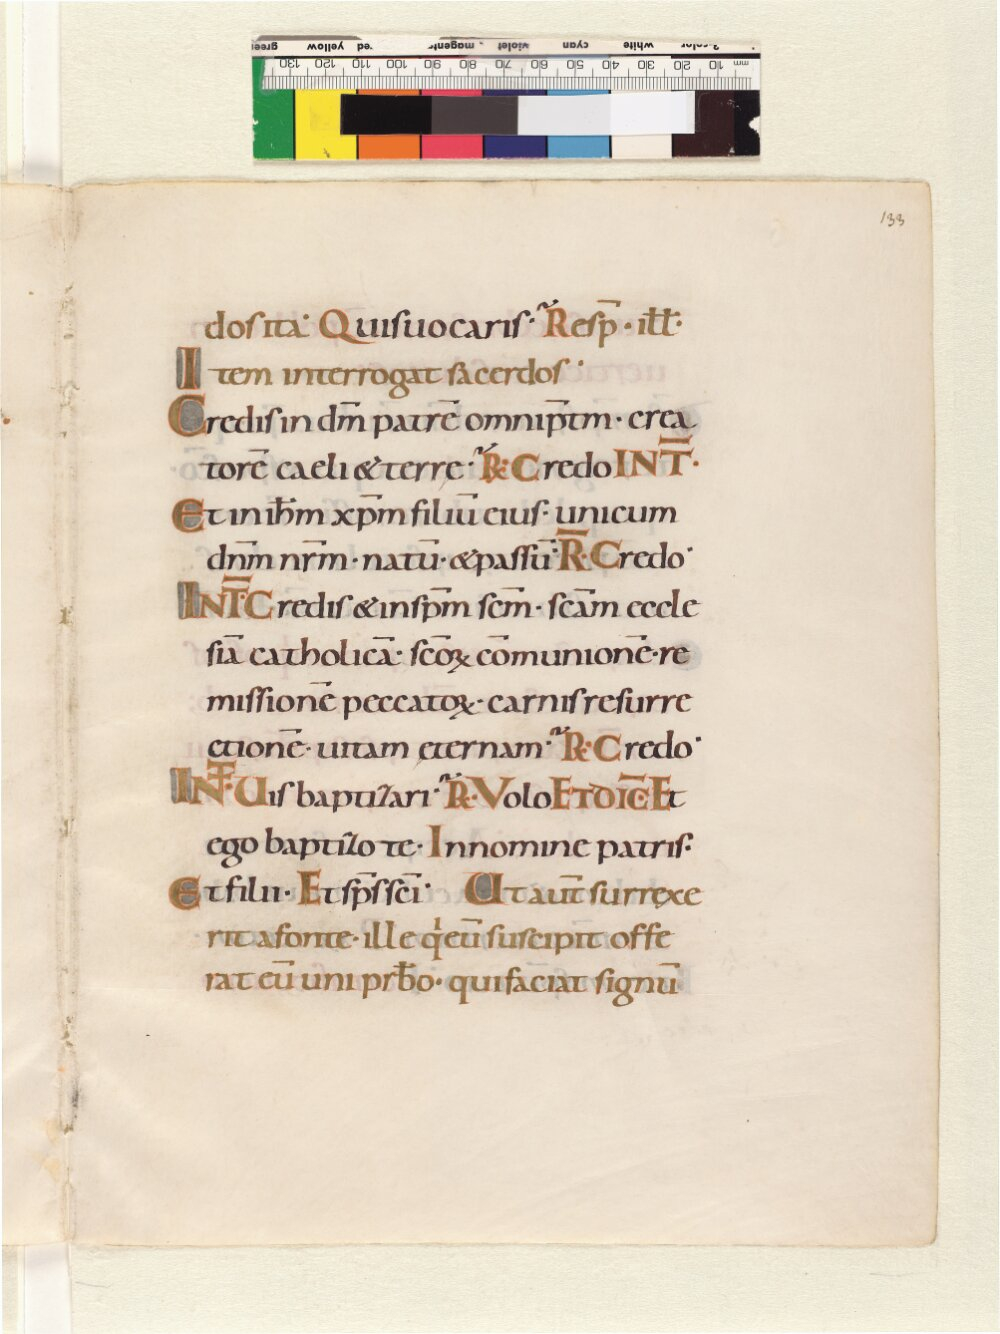 green yellow red magenta violet cyan white 3-color
130 120 110 100 90 80 70 60 50 40 30 20 10 mm
133
dos ita· Quis uocaris· R̃esp̄· ill̄·
Item interrogat sacerdos·
Credis in dm̄ patrē omnip̄tm· crea
torē caeli & terre· R̃· Credo INT̄·
Et in ih̄m xp̄m filiū eius· unicum
dnm̄ nrm̄· natū· & passū· R̄· Credo·
INT̄· Credis & in sp̄m scm̄· scām eccle
siā catholicā· scōꝝ cōmunionē· re
missionē peccatoꝝ· carnis resurre
ctionē· uitam eternam· R̃· Credo·
INT̄· Uis baptizari· R̃· Volo ET DIC̄· Et
ego baptizo te· In nomine patris·
Et filii· Et sp̄s scī· Ut aūt surrexe
rit a fonte· ille qͥ eū suscipit offe
rat eū uni prb̄o· qui faciat signū